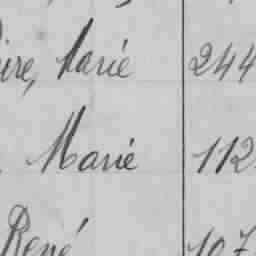 ire, Marie 244
Marie 112
René 107